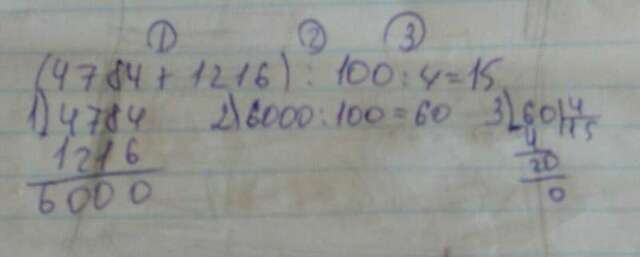 ① ② ③
(4784 + 1216) : 100 : 4 = 15
1) 4784 2) 6000 : 100 = 60 3) 60 | 4
1216 4 15
6000 20
0